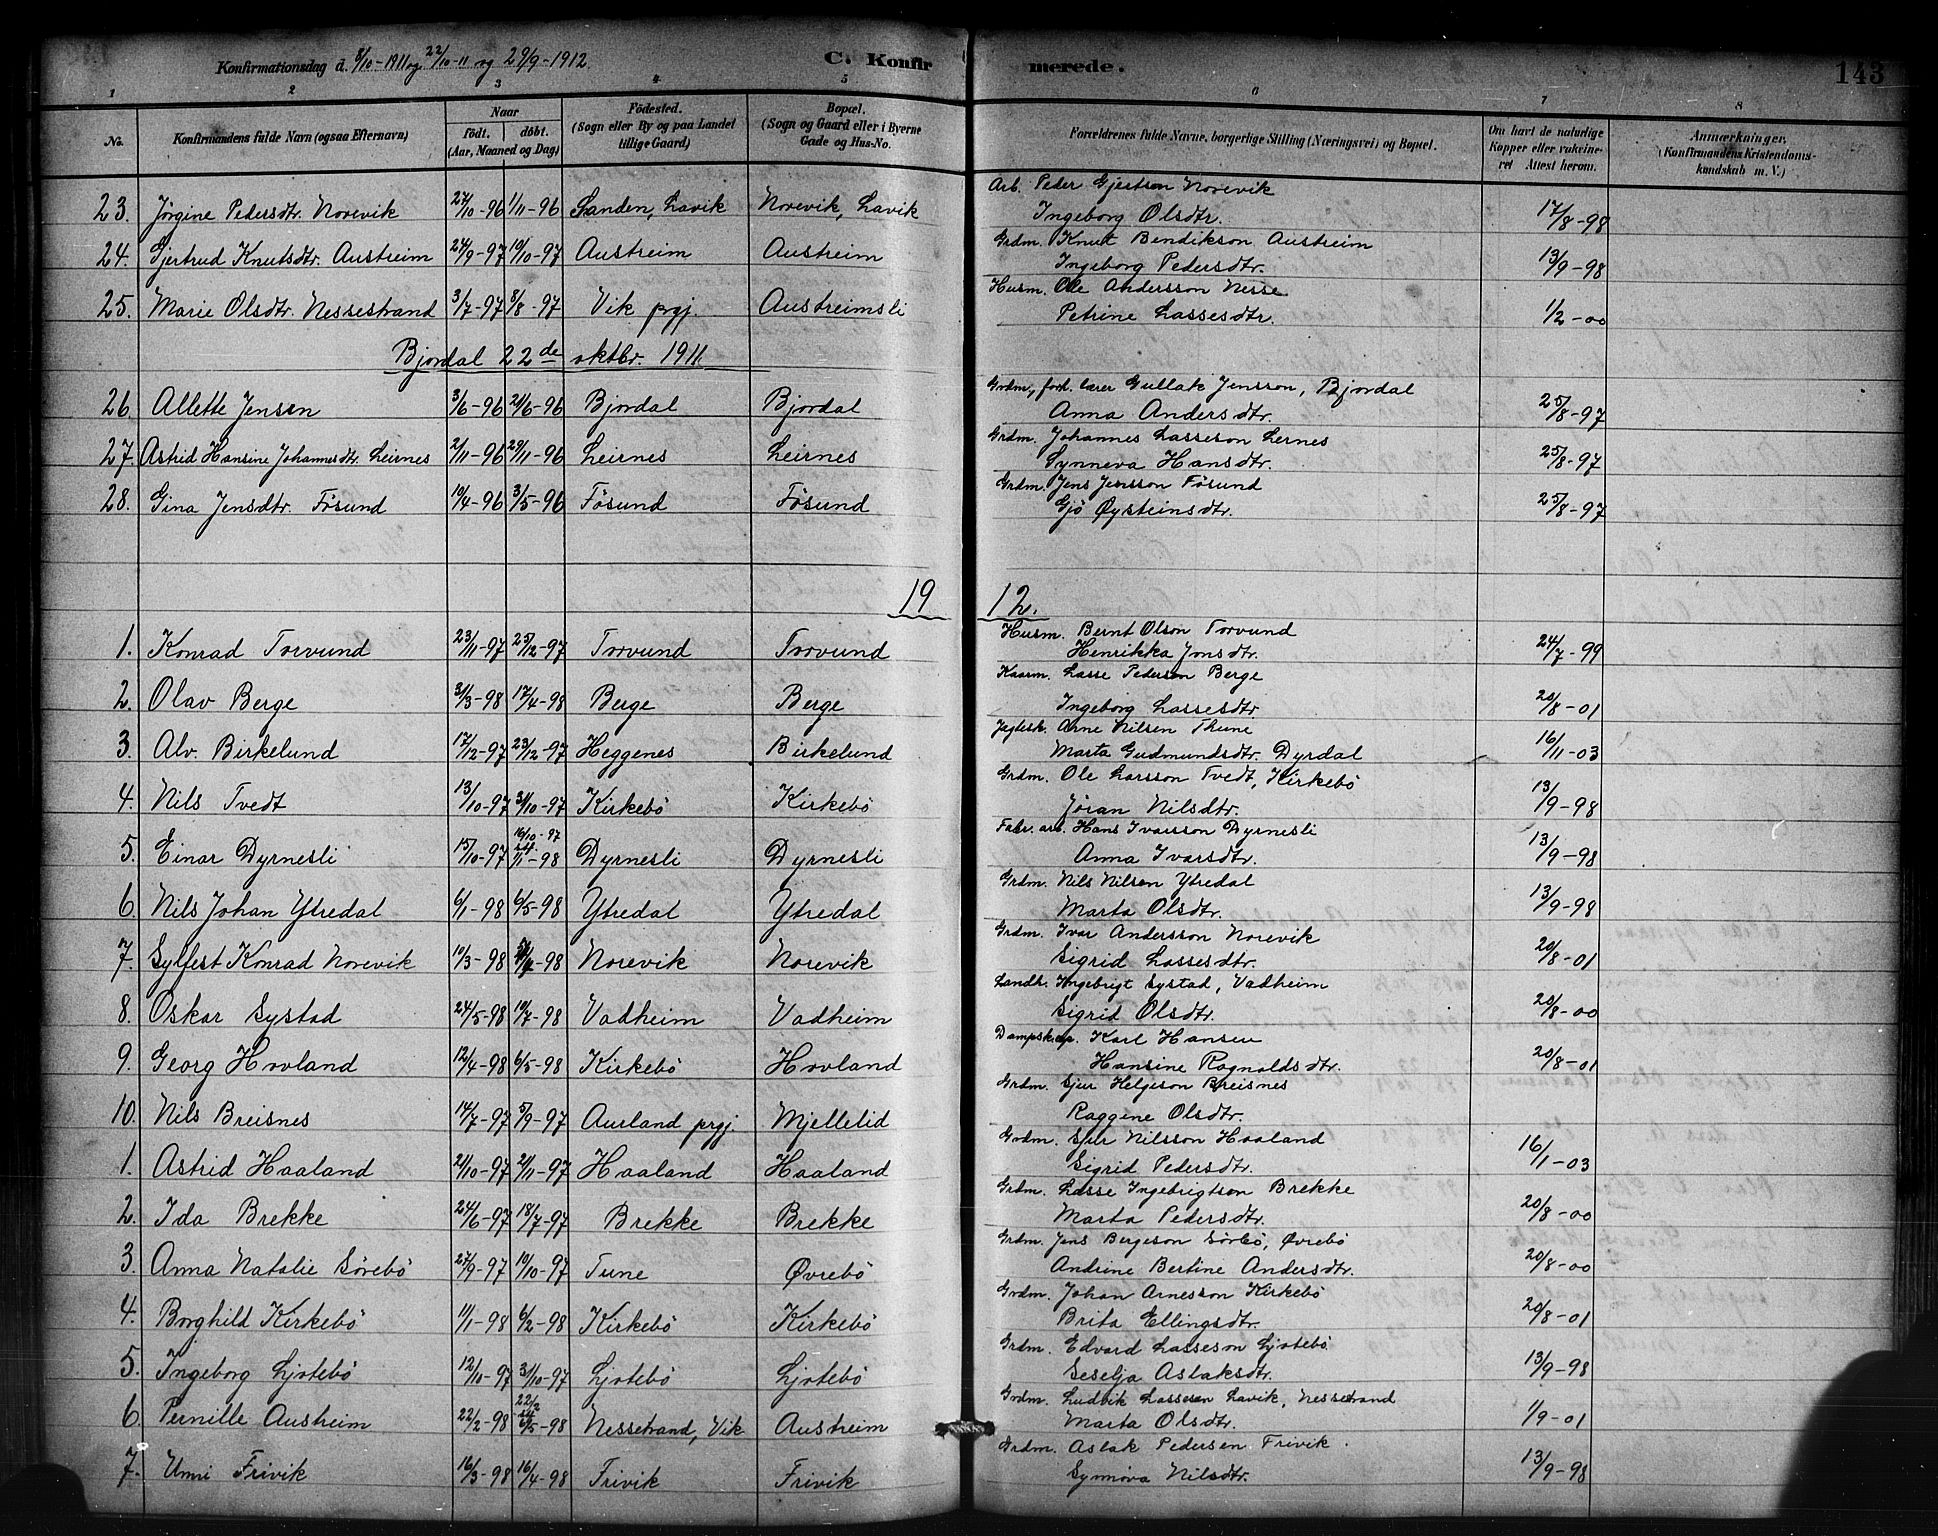 Konfirmationsdag d. 8/10-1911 og 22/10-11 og 29/9-1912. C. Konfirmerede. 143
1 2 3 4 5 6 7 8
No. Konfirmandens fulde Navn (ogsaa Efternavn) Naar födt. döbt. (Aar, Maaned og Dag) Födested. (Sogn eller By og paa Landet tillige Gaard) Bopæl. (Sogn og Gaard eller i Byerne Gade og Hus-No. Forældrenes fulde Navne, borgerlige Stilling (Næringsvei) og Bopæl. Om havt de naturlige Kopper eller vakcineret Attest herom. Anmærkninger. (Konfirmandens Kristendomskundskab m. V.)
23. Jørgine Pedersdtr. Norevik 27/10-96 1/11-96 Sanden, Lavik Norevik, Lavik Arb. Peder Gjertson Norevik
Ingeborg Olsdtr. 17/8-98
24. Gjertrud Knutsdtr. Austreim 24/9-97 10/10-97 Austreim Austreim Grdm. Knut Bendikson Austreim
Ingeborg Pedersdtr. 13/9-98
25. Marie Olsdtr. Nessestrand 3/7-97 8/8-97 Vik prgj. Austreimsli Husm. Ole Andersson Nesse
Petrine Lassesdtr. 1/2-00
Bjordal 22de oktbr. 1911.
26. Allette Jensen 3/6-96 21/6-96 Bjordal Bjordal Grdm., forh. lærer Gullak Jensson, Bjordal
Anna Andersdtr. 25/8-97
27. Astrid Hansine Johannesdtr. Leirnes 2/11-96 29/11-96 Leirnes Leirnes Grdm. Johannes Lasseson Lernes
Synneva Hansdtr. 25/8-97
28. Gina Jensdtr. Fösund 10/4-96 3/5-96 Fösund Fösund Grdm. Jens Jensson Fösund
Gjö Øysteinsdtr. 25/8-97
19 12.
1. Konrad Torvund 23/11-97 25/12-97 Torvund Torvund Husm. Bernt Olson Torvund
Henrikka Jonsdtr. 24/7-99
2. Olav Berge 31/3-98 17/4-98 Berge Berge Kaarm. Lasse Pederson Berge
Ingeborg Lassesdtr 20/8-01
3. Alv. Birkelund 17/12-97 23/12-97 Heggenes Birkelund Jagtesk. Arne Nilsen Thune
Marta Gudmundsdtr. Dyrdal 16/11-03
4. Nils Tvedt 13/10-97 31/10-97 Kirkebö Kirkebö Grdm. Ole Larsson Tvedt, Kirkebö
Jöran Nilsdtr. 13/9-98
5. Einar Dyrnesli 15/10-97 16/10-97 1/1-98 Dyrnesli Dyrnesli Fabr. arb. Hans Ivarsson Dyrnesli
Anna Ivarsdtr. 13/9-98
6. Nils Johan Ytredal 6/1-98 6/5-98 Ytredal Ytredal Grdm. Nils Nilsen Ytredal
Marta Olsdtr. 13/9-98
7. Sylfest Konrad Norevik 10/3-98 -98 Norevik Norevik Grdm. Ivar Andersson Norevik
Sigrid Lassesdtr. 20/8-01
8. Oskar Systad 24/5-98 10/7-98 Vadheim Vadheim Landh. Ingebrigt Systad, Vadheim
Sigrid Olsdtr. 20/8-00
9. Georg Hovland 12/4-98 6/5-98 Kirkebö Hovland Dampskap. Karl Hansen
Hansine Ragnaldsdtr. 20/8-01
10. Nils Breisnes 14/7-97 5/9-97 Aurland prgj. Mjellelid Grdm. Sjur Helgeson Breisnes
Raggene Olsdtr.
1. Astrid Haaland 2/10-97 2/11-97 Haaland Haaland Grdm. Sjur Nilsson Haaland
Sigrid Pedersdtr. 16/1-03
2. Ida Brekke 24/6-97 18/7-97 Brekke Brekke Grdm. Lasse Ingebrigtson Brekke
Marta Pedersdtr. 20/8-00
3. Anna Natalie Sörebö 27/9-97 10/10-97 Tune Øvrebö Grdm. Jens Bergeson Sörbö, Øvrebö
Andrine Bertine Andersdtr. 20/8-00
4. Borghild Kirkebö 11/1-98 6/2-98 Kirkebö Kirkebö Grdm. Johan Arnesson Kirkebö
Brita Ellingsdtr. 20/8-01
5. Ingeborg Ljotebö 12/10-97 31/10-97 Ljotebö Ljotebö Grdm. Edvard Lasseson Ljotebö
Seselja Aslaksdtr. 13/9-98
6. Pernille Austreim 22/2-98 22/2 /5-98 Nessestrand, Vik Austreim Grdm. Ludvik Lassesen Lavik, Nessestrand
Marta Olsdtr. 1/9-01
7. Unni Frivik 16/3-98 16/4-98 Frivik Frivik Grdm. Aslak Pedersen Frivik.
Synnöva Nilsdtr. 13/9-98